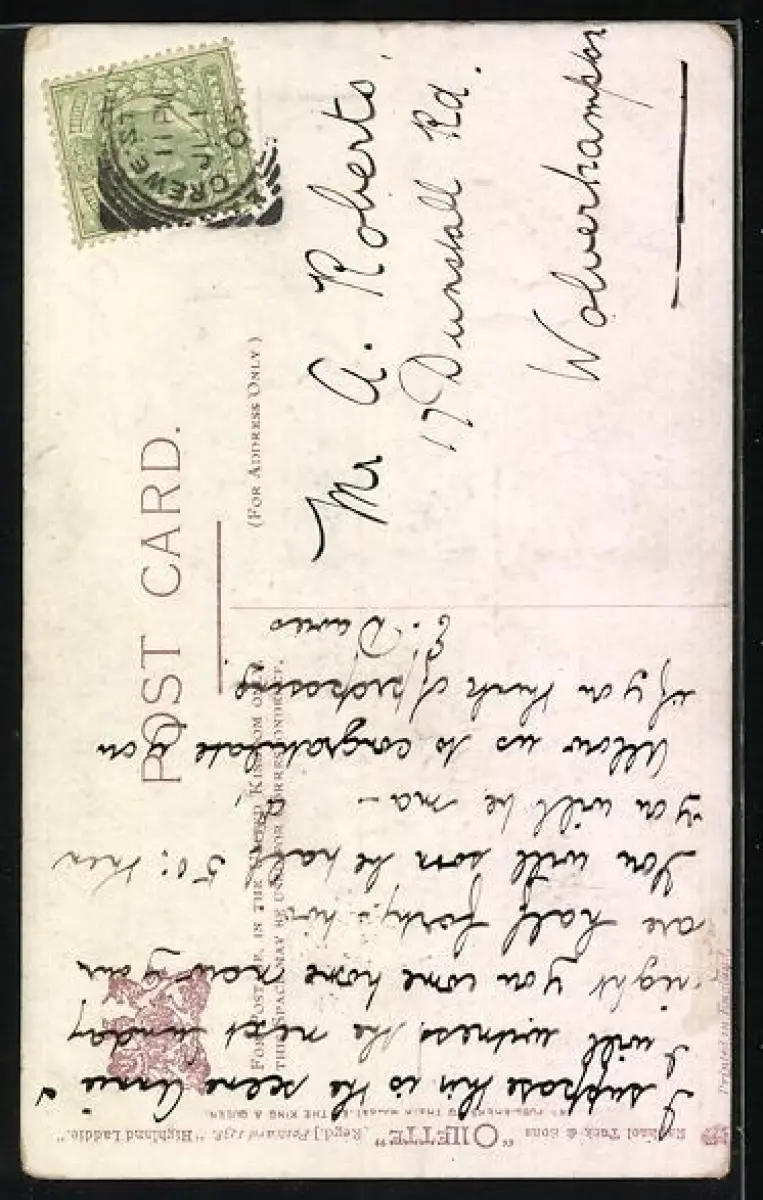 POST CARD.
(FOR ADDRESS ONLY)
FOR POSTAGE, IN THE UNITED KINGDOM ONLY,
THIS SPACE MAY BE USED FOR CORRESPONDENCE.
CREWE
11 PM
JL 1
05
Mr A. Roberts,
17 Dunstall Rd.
Wolverhampton
Raphael Tuck & Sons "OILETTE" [Regd.] Postcard "Highland Laddie."
ART PUBLISHERS TO THEIR MAJESTIES THE KING & QUEEN.
I suppose this is the scene Annie &
I will witness the next Sunday
night you come home now you
are half forty:
You will soon be half 50: then
you will be ma-
Allow us to congratulate you
if you think of proposing
E. Davies
Printed in England